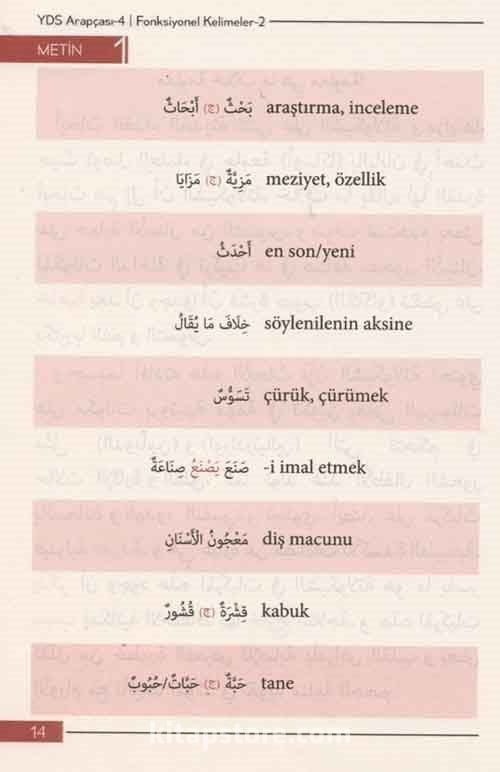 YDS Arapçası-4 | Fonksiyonel Kelimeler-2
METİN 1
بَحْثٌ (ج) أَبْحَاثٌ araştırma, inceleme
مَزِيَّةٌ (ج) مَزَايَا meziyet, özellik
أَحْدَثُ en son/yeni
خِلَافَ مَا يُقَالُ söylenilenin aksine
تَسَوُّسٌ çürük, çürümek
صَنَعَ يَصْنَعُ صِنَاعَةٌ -i imal etmek
مَعْجُونُ الْأَسْنَانِ diş macunu
قِشْرَةٌ (ج) قُشُورٌ kabuk
حَبَّةٌ (ج) حَبَّاتٌ/حُبُوبٌ tane
14
kitapstore.com